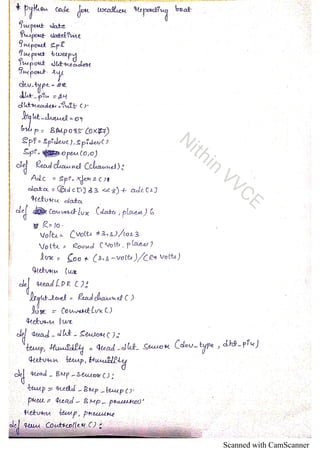 * Python code for weather Reporting boat
Import date
Import datetime
Import SPI
Import tweepy
Import dhtreader
Import sys
dev_type = 22
dht_pin = 24
dhtreader.init ().
light_channel = 04
bmp = BAMP085 (0X77)
Spi = Spidev(). Spidev()
Spi. open (0,0)
def Read channel (channel):
Adc = Spi.
data = [1] & 3 << 8) + adc [2]
return data
def Convert lux (data, places) :
R = 10.
Volts = (Volts * 3.3) / 1023
Volts = Round (Volts, places)
lux = 500 * (3.3 - volts) / (R * Volts)
return lux
def read LDR ():
light_level = Read channel ()
lux = Convert Lux ()
return lux
def read_dht_Sensor ():
temp, Humidity = read_dht_Sensor (dev_type, dht_pin)
return temp, Humidity
def read_BMP_Sensor ():
temp = read_BMP_temp ()
pres = read_BMP_pressure()
return temp, pressure
def run Controller ():
Nithin VVCE
Scanned with CamScanner